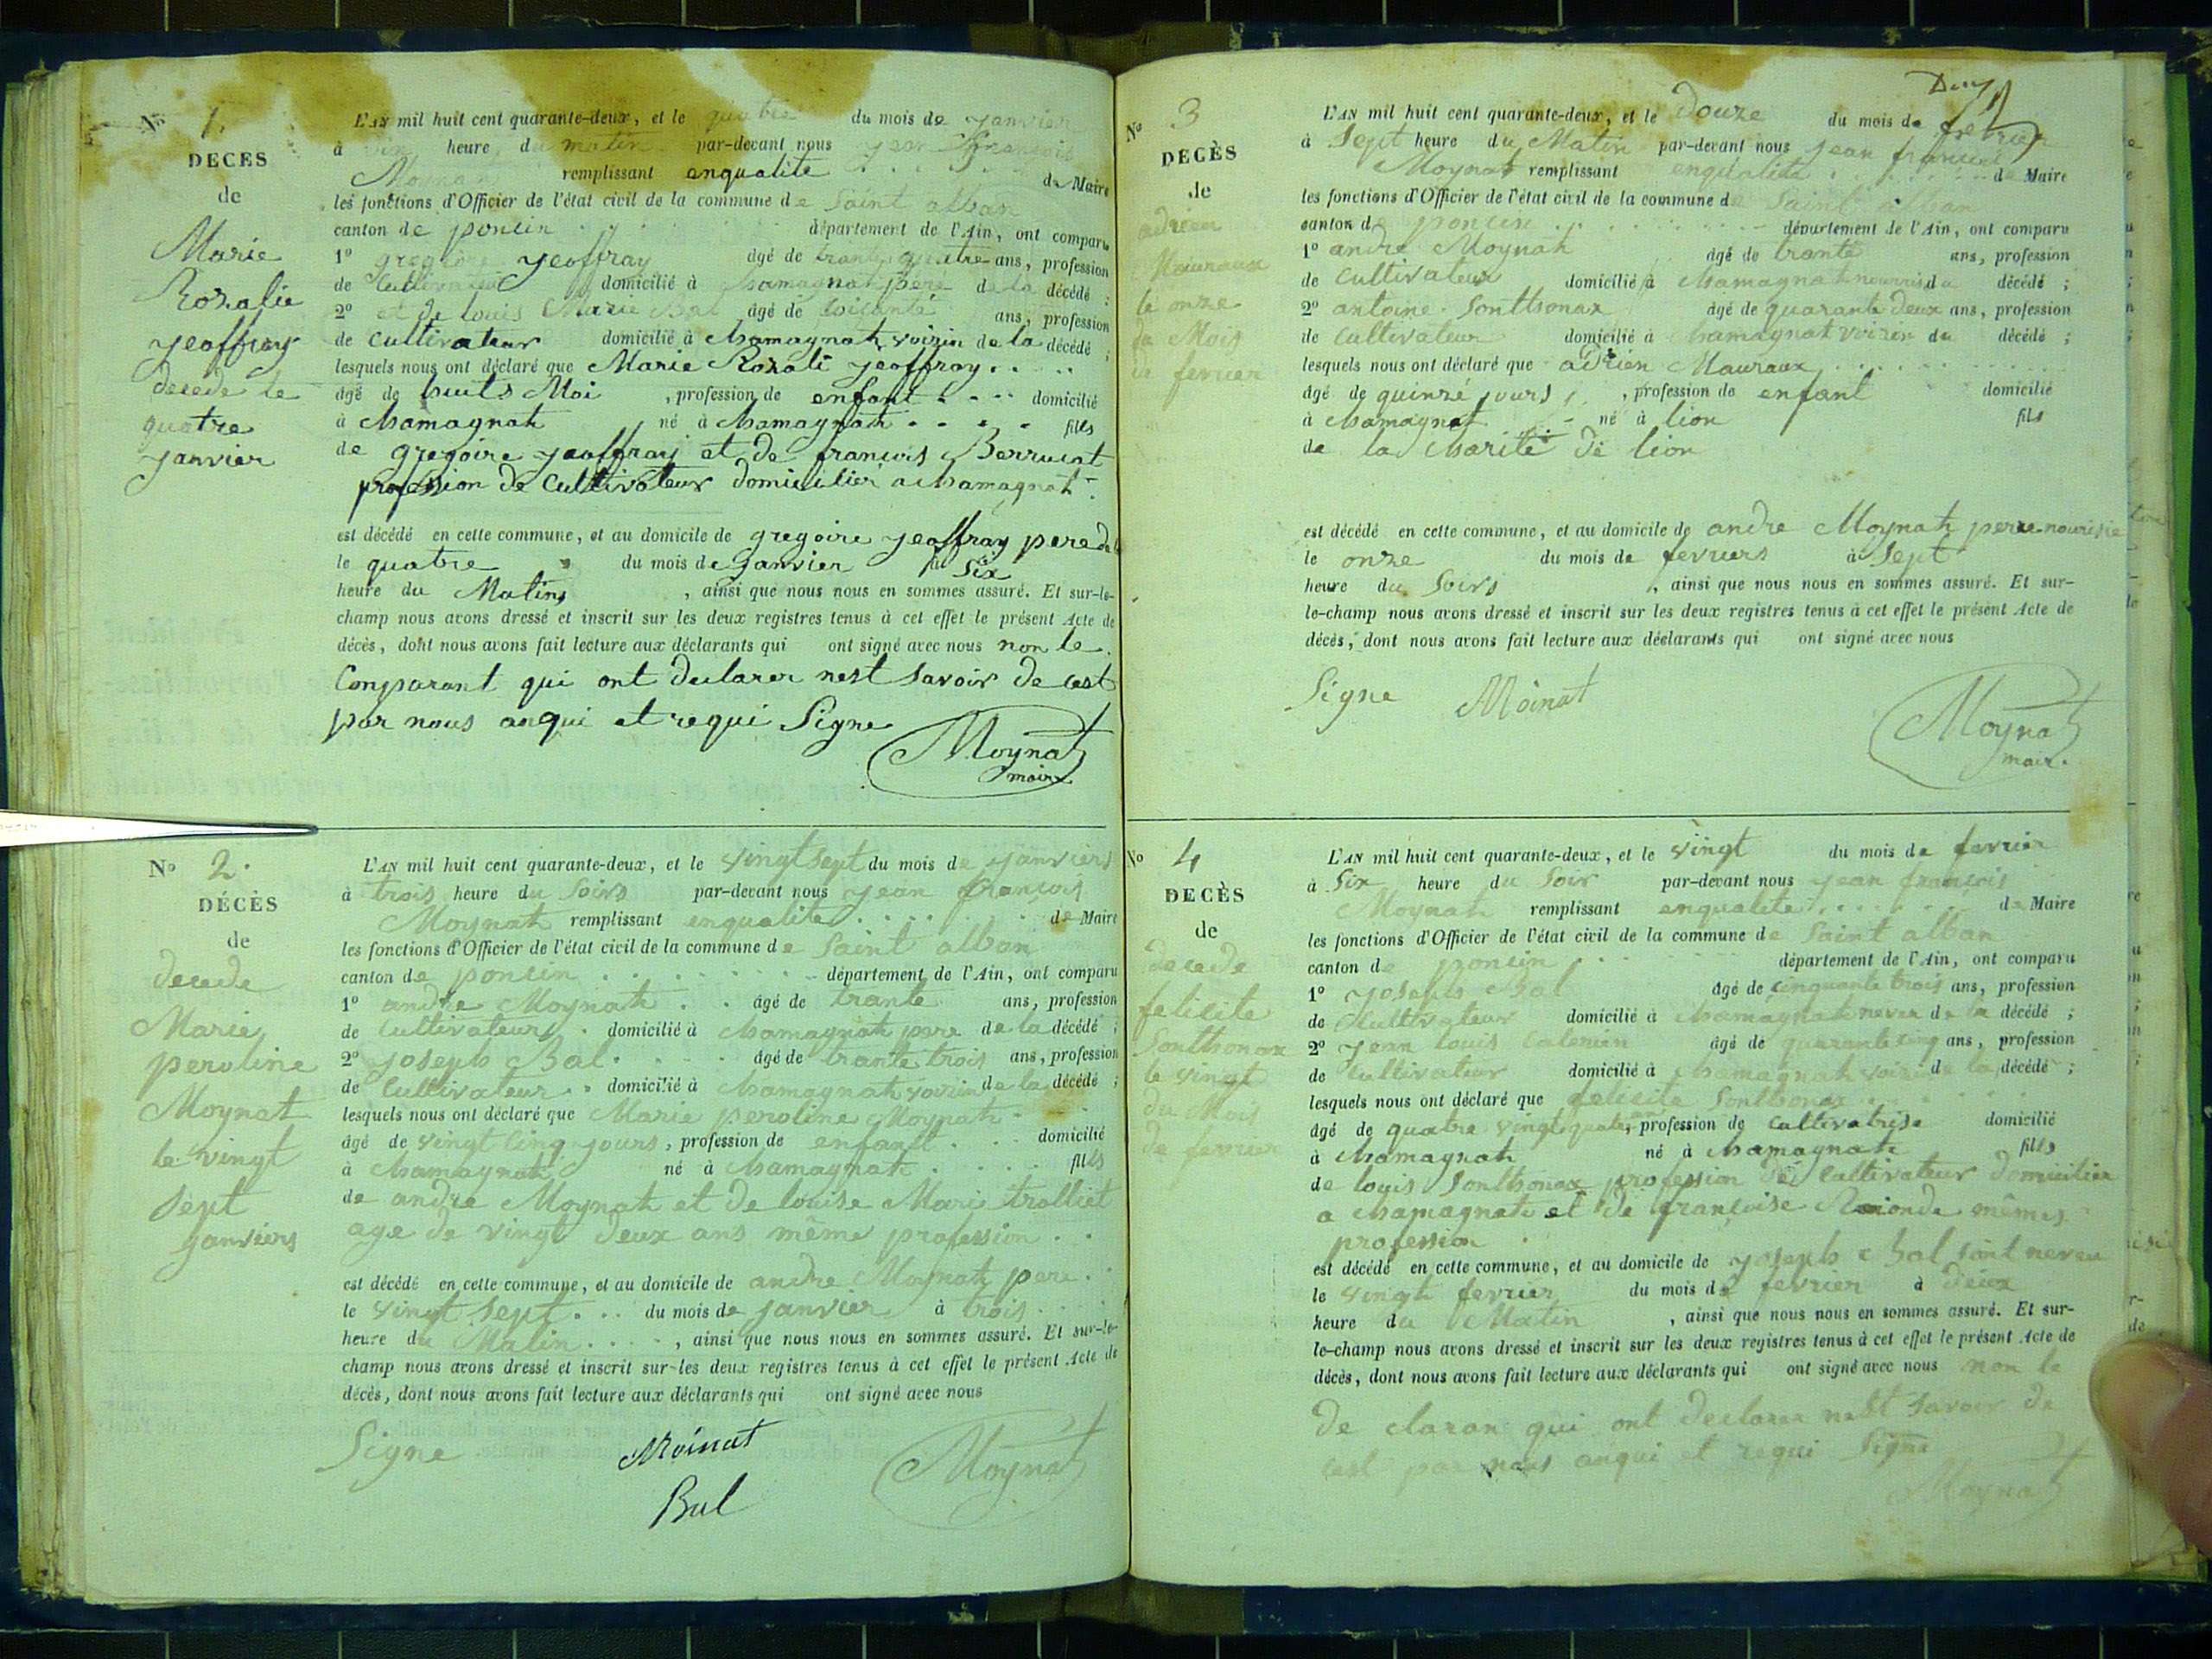 N° 1.
DECES
de
Marie
Rozalie
yeoffray
decede le
quatre
janvier
L'AN mil huit cent quarante-deux, et le quatre du mois de janvier
à heure du matin par-devant nous jean francois
Moynat remplissant enqualite de Maire
les fonctions d'Officier de l'état civil de la commune de Saint alban
canton de poncin département de l'Ain, ont comparu
1° gregoire yeoffray âgé de trante quatre ans, profession
de Cultivateur domicilié à Chamagnat pere de la décédé ;
2° et de louis Marie Bal âgé de soicante ans, profession
de Cultivateur domicilié à Chamagnat voizin de la décédé ;
lesquels nous ont déclaré que Marie Rozali yeoffroy . . . .
âgé de huits Moi , profession de enfant . . . . domicilié
à Chamagnat né à Chamagnat . . . . fills
de gregoire yeoffray et de francois Berruent
profession de Cultivateur domicilier a chamagnat .
est décédé en cette commune, et au domicile de gregoire yeoffray pere de
le quatre du mois de janvier à Six
heure du Matins , ainsi que nous nous en sommes assuré. Et sur-le-
champ nous avons dressé et inscrit sur les deux registres tenus à cet effet le présent Acte de
décès, dont nous avons fait lecture aux déclarants qui ont signé avec nous non le
Comparant qui ont declarer nest savoir de cest
par nous anqui et requi Signe
Moynat
maire
N° 2.
DÉCÈS
de
decede
Marie
peroline
Moynat
le vingt
sept
janviers
L'AN mil huit cent quarante-deux, et le vingt sept du mois de janviers
à trois heure du Soirs par-devant nous jean francois
Moynat remplissant enqualite . . . . de Maire
les fonctions d'Officier de l'état civil de la commune de Saint alban
canton de poncin . . . . département de l'Ain, ont comparu
1° andre Moynat . . âgé de trante ans, profession
de Cultivateurs . domicilié à Chamagnat pere de la décédé ;
2° joseph Bal . . . . âgé de trante trois ans, profession
de Cultivateur . . domicilié à Chamagnat voizin de la décédé ;
lesquels nous ont déclaré que Marie peroline Moynat .
âgé de vingt cinq jours, profession de enfant . . . domicilié
à Chamagnat né à Chamagnat . . . . fills
de andre Moynat et de louise Marie trolliet
age de vingt deux ans même profession . .
est décédé en cette commune, et au domicile de andre Moynat pere . .
le vingt Sept . . . du mois de janvier à trois . . .
heure du Matin . . . . , ainsi que nous nous en sommes assuré. Et sur-le-
champ nous avons dressé et inscrit sur les deux registres tenus à cet effet le présent Acte de
décès, dont nous avons fait lecture aux déclarants qui ont signé avec nous
Signe Moinat
Bal
Moynat
N° 3
DECÈS
de
adrien
Mouraux
le onze
du Mois
de fevrier
L'AN mil huit cent quarante-deux, et le Douze du mois de fevrier
à Sept heure du Matin par-devant nous jean francois
Moynat remplissant enqualite . . . . de Maire
les fonctions d'Officier de l'état civil de la commune de Saint alban
canton de poncin . . . . département de l'Ain, ont comparu
1° andre Moynat âgé de trante ans, profession
de Cultivateur domicilié à Chamagnat nourris du décédé ;
2° antoine Sonthonax âgé de quarante deux ans, profession
de Cultivateur domicilié à Chamagnat voizin du décédé ;
lesquels nous ont déclaré que adrien Mauraux . . . .
âgé de quinzé jours , profession de enfant domicilié
à Chamagnat né à lion fils
de la Charité de lion
est décédé en cette commune, et au domicile de andre Moynat pere nourisie
le onze du mois de fevriers à Sept
heure du Soirs , ainsi que nous nous en sommes assuré. Et sur-
le-champ nous avons dressé et inscrit sur les deux registres tenus à cet effet le présent Acte de
décès, dont nous avons fait lecture aux déclarants qui ont signé avec nous
Signe Moinat
Moynat
mair.
N° 4
DECÈS
de
decede
felicite
Sonthonax
le vingt
du Mois
de fevrier
L'AN mil huit cent quarante-deux, et le vingt du mois de fevrier
à Six heure du Soir par-devant nous jean francois
Moynat remplissant enqualite . . . . de Maire
les fonctions d'Officier de l'état civil de la commune de Saint alban
canton de poncin . . département de l'Ain, ont comparu
1° joseph Bal âgé de cinquante trois ans, profession
de Cultivateur domicilié à Chamagnat neveu de la décédé ;
2° jean louis âgé de quarante cinq ans, profession
de Cultivateur domicilié à Chamagnat voizi de la décédé ;
lesquels nous ont déclaré que felicite Sonthonax . . . .
âgé de quatre vingt quatre, profession de Cultivatrise domicilié
à Chamagnat né à Chamagnat fills
de louis Sonthonax profession de cultivateur domicilier
a Chamagnat et de françoise mêmes
profession
est décédé en cette commune, et au domicile de joseph Bal sont neveu
le vingt fevrier du mois de fevrier à deux
heure du Matin , ainsi que nous nous en sommes assuré. Et sur-
le-champ nous avons dressé et inscrit sur les deux registres tenus à cet effet le présent Acte de
décès, dont nous avons fait lecture aux déclarants qui ont signé avec nous non le
De claran qui ont declarer nest savoir de
cest par nous anqui et requi Signe
Moynat